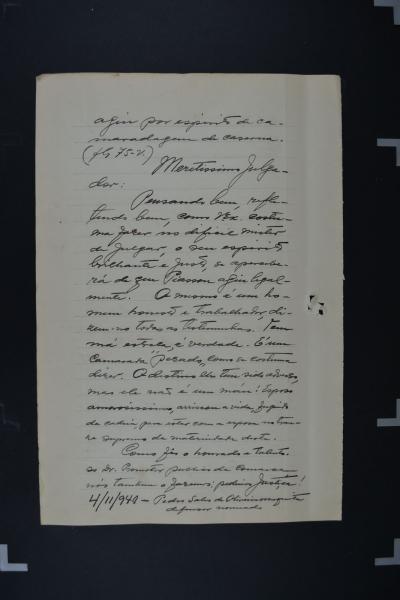 agiu por espirito de ca-
maradagem de caserna.
(fls 75-v.)
Meretissimo Julga-
dor:
Pensando bem, refle-
tindo bem, como V. Ex. costu-
ma fazer no dificil mister
de julgar, o seu espirito
brilhante e justo, se aperceberá
rá de que Piasson agiu legal-
mente. O mesmo é um ho-
mem honesto e trabalhador, di-
zem-no todas as testemunhas. Tem
má estrela, é verdade. É um
camarada "pezado", como se costuma
dizer. O destino lhe tem sido adverso,
mas ele não é um máu! Esposo
amorosissimo, arriscou a vida, fugindo
da cadeia, para estar com a esposa no tran-
se supremo da maternidade desta.
Como fez o honrado e talento-
so Dr. Promotor publico da Comarca
nós tambem o fazemos: pedimos Justiça!
4/11/941 - Pedro Sales de Oliveira Mesquita
defensor nomeado